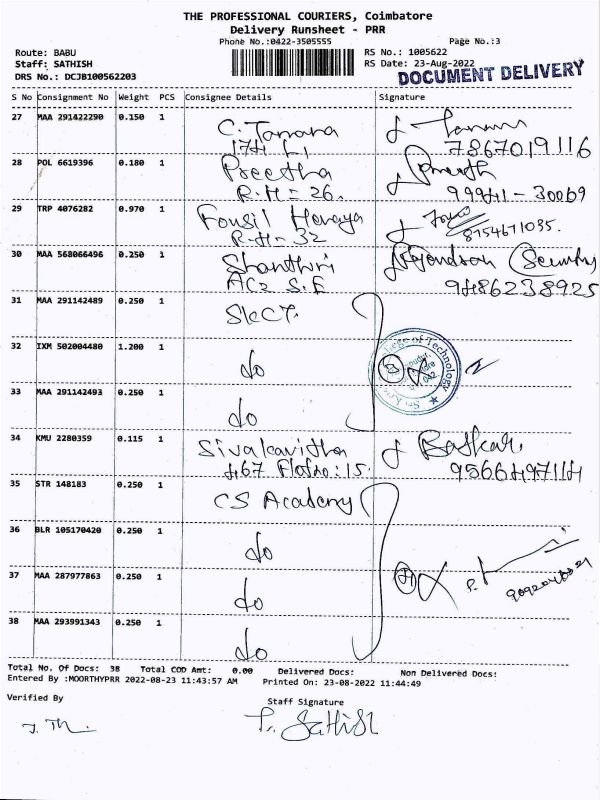 THE PROFESSIONAL COURIERS, Coimbatore
Delivery Runsheet - PRR
Phone No.:0422-3505555 Page No.:3
Route: BABU RS No.: 1005622
Staff: SATHISH RS Date: 23-Aug-2022
DRS No.: DCJB100562203 DOCUMENT DELIVERY
S No Consignment No Weight PCS Consignee Details Signature
27 MAA 291422290 0.150 1 C. Tamara
174 L1 7867019116
28 POL 6619396 0.180 1 Preetha Preeth
R.H = 26. 99941-30069
29 TRP 4076282 0.970 1
R-H= 32 8754671035.
30 MAA 568066496 0.250 1 Shanthri (Security)
AC2 S.F 9486238925
31 MAA 291142489 0.250 1 SKCT.
32 IXM 502004480 1.200 1 do
College of Technology
33 MAA 291142493 0.250 1 do
34 KMU 2280359 0.115 1 Sivakavitha Baskar
467 Flatno: 15. 9566497114
35 STR 148183 0.250 1 CS Academy
36 BLR 105170420 0.250 1 do
37 MAA 287977863 0.250 1 do
38 MAA 293991343 0.250 1 do
Total No. Of Docs: 38 Total COD Amt: 0.00 Delivered Docs: Non Delivered Docs:
Entered By :MOORTHYPRR 2022-08-23 11:43:57 AM Printed On: 23-08-2022 11:44:49
Verified By Staff Signature
Sathish